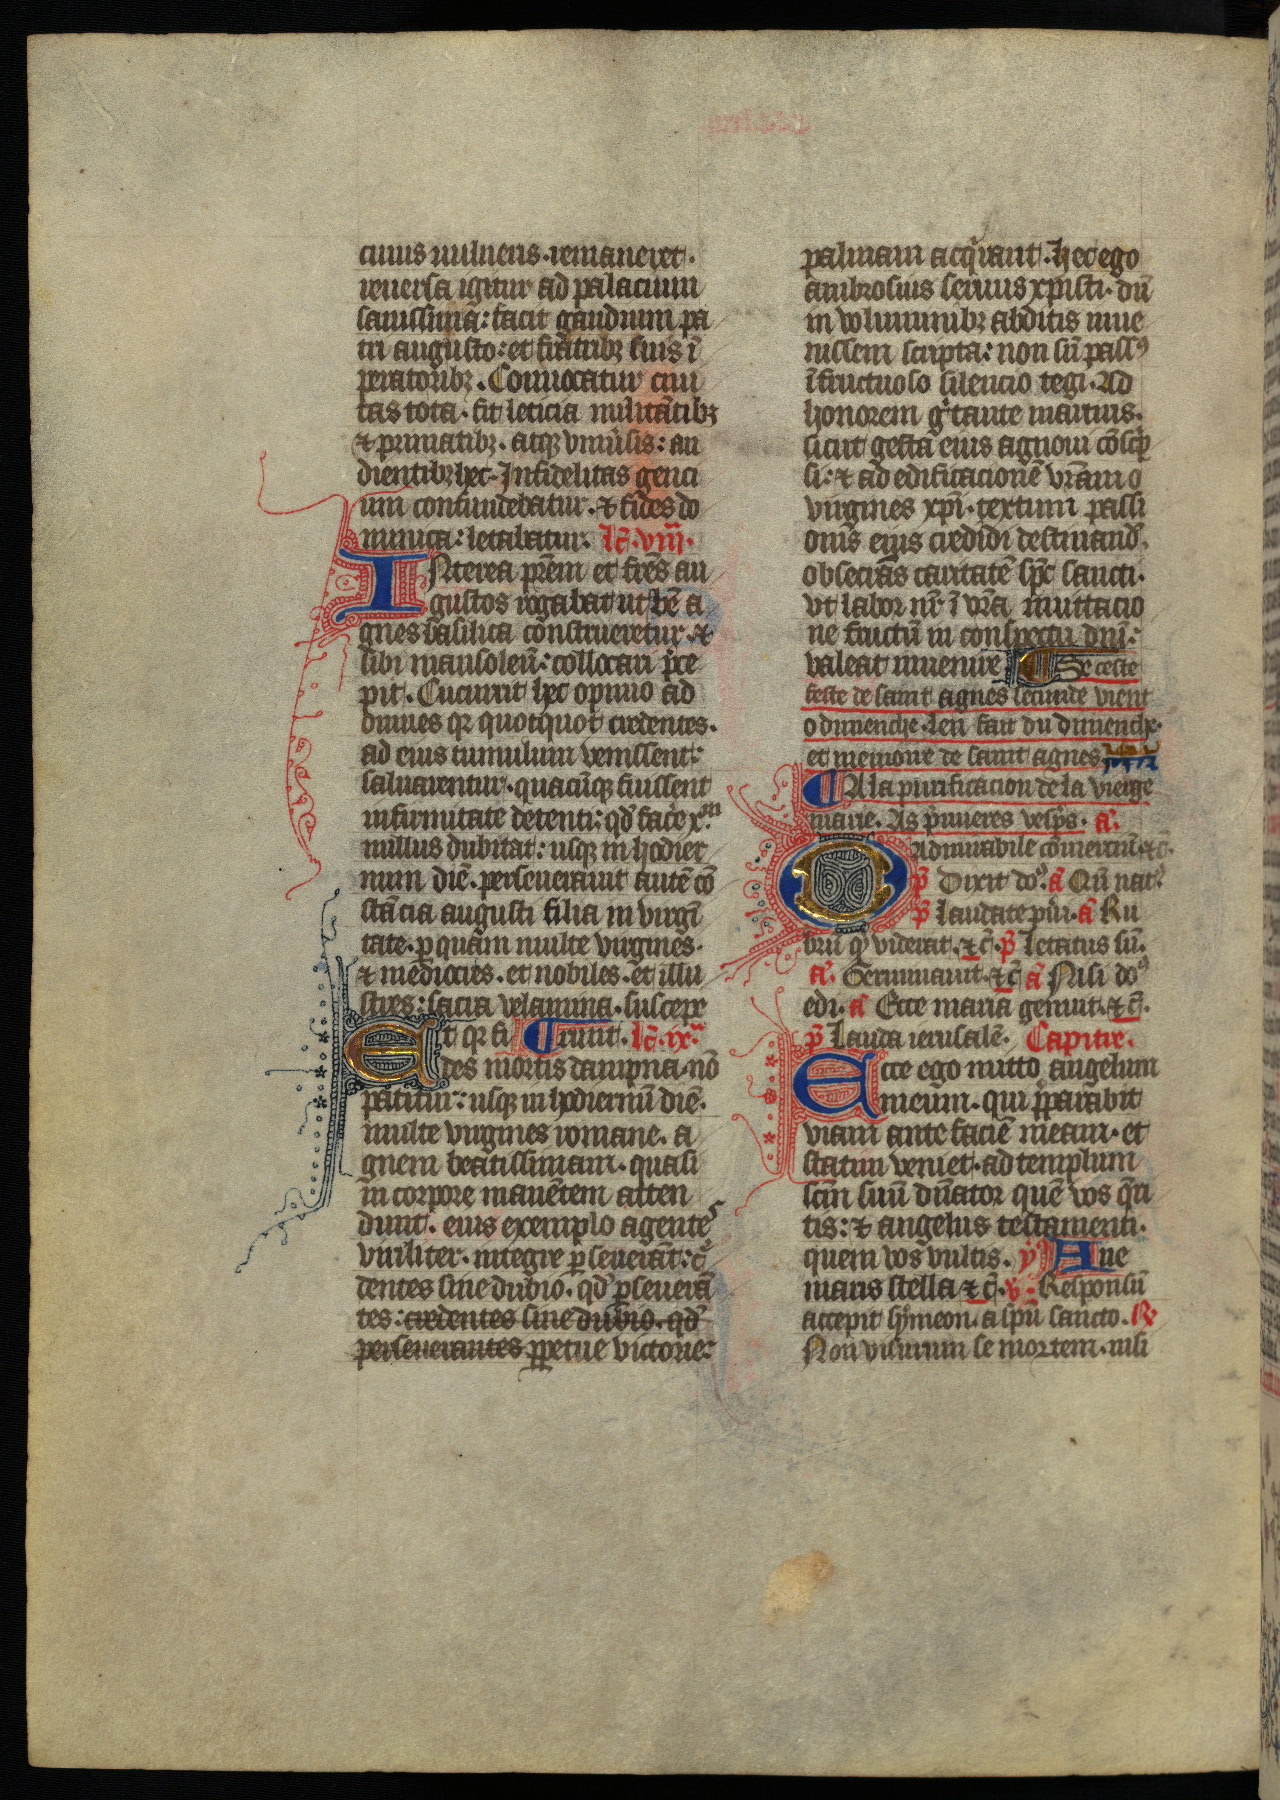 cuius uulneris. remaneret.
reuersa igitur ad palacium
sanissima: facit gaudium pa
tri augusto: et fratribȝ suis ī
peratoribȝ. Conuocatur ciui
tas tota. fit leticia militātibȝ
⁊ primatibȝ. atqȝ vniuersis: au
dientibȝ hec. Infidelitas genti
um confundebatur. ⁊ fides do
minica: letabatur. lc̄. viii.
INterea prēm et frēs au
gustos rogabat ut bē a
gnes basilica construeretur. ⁊
sibi mausoleū: collocari p̄ce
pit. Cucurrit hec opinio ad
omnes qr quotquot credentes.
ad eius tumulum venissent:
saluarentur. quacūqȝ fuissent
infirmitate detenti: qd̄ face xp̄m
nullus dubitat: usqȝ in hodier
num diē. perseuerauit autē cō
stācia augusti filia in virgī
tate. p quam multe virgines.
⁊ mediocres. et nobiles. et illu
stres: sacra velamina. suscepe
Et qr fi runt. lc̄. ix.
des mortis dampna. nō
patitur: usqȝ in hodiernū diē.
multe virgines romane. a
gnem beatissimam. quasi
in corpore manētem atten
dunt. eius exemplo agentes
viriliter. integre pseuerāt: c̄
dentes sine dubio. qd̄ pseuerā
tes: credentes sine dubio. qd̄
perseuerantes ppetue victorie:
palmam acquirant. Hec ego
ambrosius seruus xpisti. dū
in voluminibȝ abditis inue
nissem scripta: non sū passꝰ
īfructuoso silencio tegi. Ad
honorem gͣ tante martiris.
sicut gesta eius agnoui cōscp̄
si: ⁊ ad edificacionē vrām o
virgines xpī. textum passi
onis eius credidi destinand̄.
obsecrās caritatē spc̄ sancti.
vt labor nr̄ ī vrā. imitacio
ne fructū in conspectu dnī:
valeat inuenire. Se ceste
feste de saint agnes secunde vient
o dimenche. len fait du dimenche.
et memoire de saint agnes
A la purification de la vierge
marie. As p̄mieres vesp̄s. a.
O admirabile cōmerciū. ⁊c̄.
p̄ Dixit do. a Qn̄ nat
p̄ laudate puī. a Ru
brū q̄ viderat. ⁊c̄. p̄ letatus sū.
a. Germinauit. ⁊c̄ a Nisi do
edi. a Ecce maria genuit. ⁊ c̄.
p̄ Lauda ierusalē. Capitre.
Ecce ego mitto angelum
meum. qui p̄parabit
viam ante faciē meam. et
statim veniet. ad templum
scm̄ suū dn̄ator quē vos q̄ri
tis: ⁊ angelus testamenti.
quem vos vultis. y Aue
maris stella ⁊ c̄. v. Responsū
accepit symeon. a spū sancto. R
Non visurum se mortem. nisi